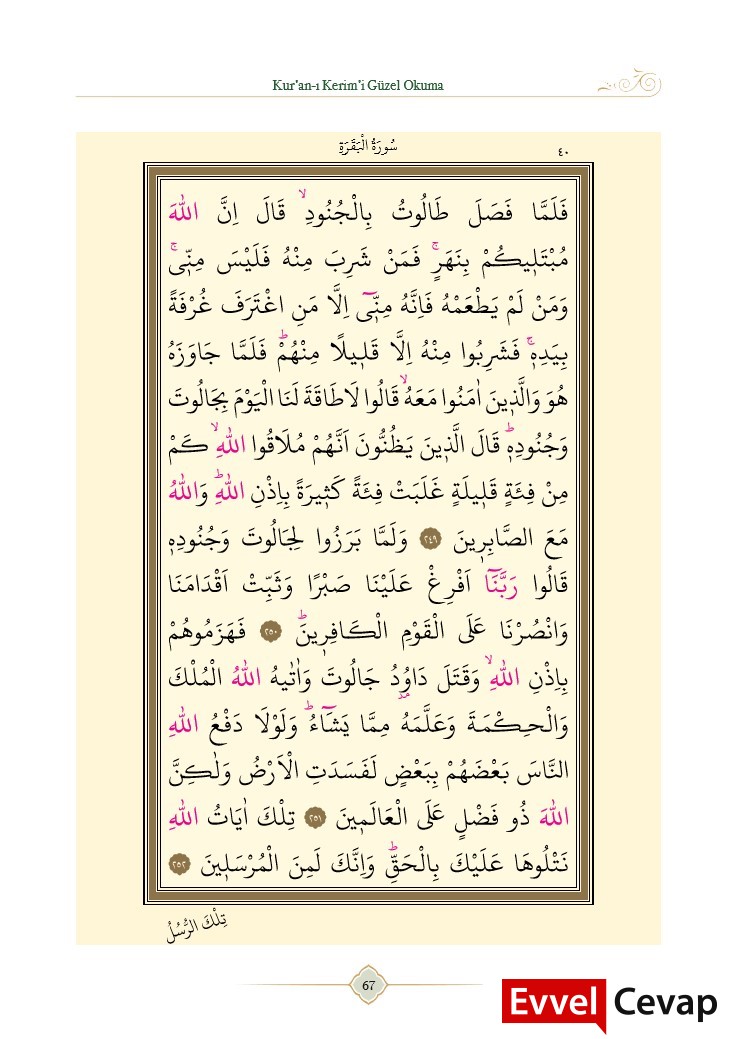 Kur'an-ı Kerim'i Güzel Okuma
سُورَةُ الْبَقَرَةِ ٤٠
فَلَمَّا فَصَلَ طَالُوتُ بِالْجُنُودِۙ قَالَ اِنَّ اللّٰهَ
مُبْتَلٖيكُمْ بِنَهَرٍۚ فَمَنْ شَرِبَ مِنْهُ فَلَيْسَ مِنّٖيۚ
وَمَنْ لَمْ يَطْعَمْهُ فَاِنَّهُ مِنّٖٓي اِلَّا مَنِ اغْتَرَفَ غُرْفَةً
بِيَدِهٖۚ فَشَرِبُوا مِنْهُ اِلَّا قَلٖيلًا مِنْهُمْؕ فَلَمَّا جَاوَزَهُ
هُوَ وَالَّذٖينَ اٰمَنُوا مَعَهُۙ قَالُوا لَا طَاقَةَ لَنَا الْيَوْمَ بِجَالُوتَ
وَجُنُودِهٖؕ قَالَ الَّذٖينَ يَظُنُّونَ اَنَّهُمْ مُلَاقُوا اللّٰهِۙ كَمْ
مِنْ فِئَةٍ قَلٖيلَةٍ غَلَبَتْ فِئَةً كَثٖيرَةً بِاِذْنِ اللّٰهِؕ وَاللّٰهُ
مَعَ الصَّابِرٖينَ ٢٤٩ وَلَمَّا بَرَزُوا لِجَالُوتَ وَجُنُودِهٖ
قَالُوا رَبَّنَٓا اَفْرِغْ عَلَيْنَا صَبْرًا وَثَبِّتْ اَقْدَامَنَا
وَانْصُرْنَا عَلَى الْقَوْمِ الْكَافِرٖينَؕ ٢٥٠ فَهَزَمُوهُمْ
بِاِذْنِ اللّٰهِۙ وَقَتَلَ دَاوُ۫دُ جَالُوتَ وَاٰتٰيهُ اللّٰهُ الْمُلْكَ
وَالْحِكْمَةَ وَعَلَّمَهُ مِمَّا يَشَٓاءُؕ وَلَوْلَا دَفْعُ اللّٰهِ
النَّاسَ بَعْضَهُمْ بِبَعْضٍ لَفَسَدَتِ الْاَرْضُ وَلٰكِنَّ
اللّٰهَ ذُو فَضْلٍ عَلَى الْعَالَمٖينَ ٢٥١ تِلْكَ اٰيَاتُ اللّٰهِ
نَتْلُوهَا عَلَيْكَ بِالْحَقِّؕ وَاِنَّكَ لَمِنَ الْمُرْسَلٖينَ ٢٥٢
تِلْكَ الرُّسُلُ
67
Evvel Cevap